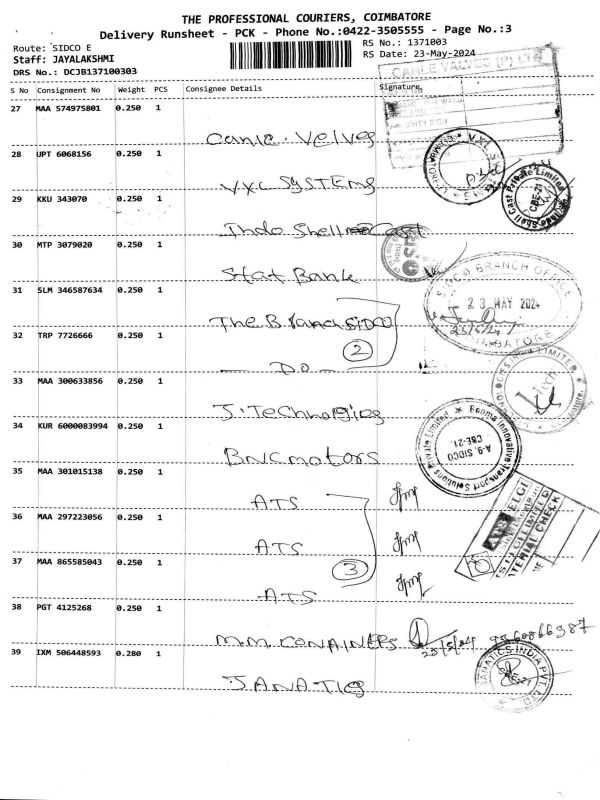 THE PROFESSIONAL COURIERS, COIMBATORE
Delivery Runsheet - PCK - Phone No.:0422-3505555 - Page No.:3
Route: SIDCO E
RS No.: 1371003
Staff: JAYALAKSHMI
RS Date: 23-May-2024
DRS No.: DCJB137100303
S No Consignment No Weight PCS Consignee Details Signature
CANLE VALVES (P) LTD
27 MAA 574975801 0.250 1
Canle. Velves
28 UPT 6068156 0.250 1
V.X.L SYSTEMS
29 KKU 343070 0.250 1
Indo Shell Cast
Indo Shell Cast Private Limited
CBE-21
30 MTP 3079020 0.250 1
Stat Bank
31 SLM 346587634 0.250 1
The Branch SIDCO
SIDCO BRANCH OFFICE
23 MAY 2024
23/5/24
COIMBATORE
32 TRP 7726666 0.250 1
DO
2
33 MAA 300633856 0.250 1
J. Technolgies
34 KUR 6000083994 0.250 1
BNC motors
Booma Innovative Transport Solutions Private Limited
A-9, SIDCO
CBE-21.
35 MAA 301015138 0.250 1
ATS
36 MAA 297223056 0.250 1
ATS
ATS ELGI
MATERIAL CHECK
37 MAA 865585043 0.250 1
3
ATS
38 PGT 4125268 0.250 1
M.M. CONAINERS
23/5/24
39 IXM 506448593 0.280 1
JANATICS
JANATICS INDIA PVT LTD